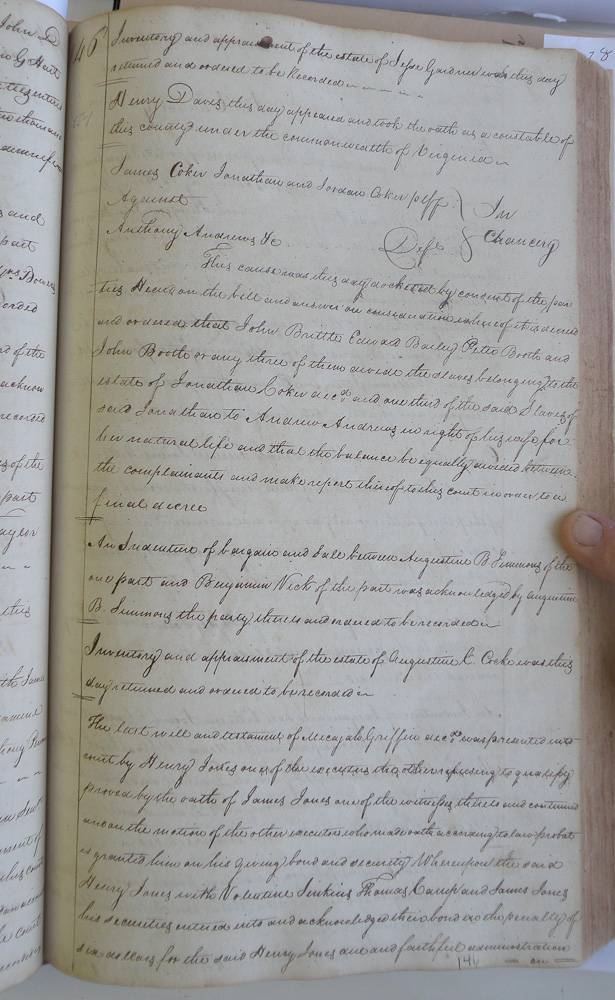 46
Inventory and appraisment of the estate of Jesse Gardner was this day
returned and ordered to be Recorded
Henry Davis this day appeared and took the oath as a constable of
this county under the commonwealth of Virginia
James Coker Jonathan and Jordan Coker pltfs } In
Against
Anthony Andrews &c Defts } Chancery
This cause was this day docketed by consent of the par
ties Heard on the bill and answer on consideration whereof it is decreed
and ordered that John Brittle Edward Bailey Peter Booth and
John Booth or any three of them divide the slaves belonging to the
estate of Jonathan Coker decd and one third of the said Slaves of
said Jonathan to Andrew Andrews in right of his wife for
her natural life and that the balance be equally divided between
the complainants and make report thereof to this court in order to a
final decree
An Indenture of bargain and Sale between Augustine B. Simmons of the
one part and Benjamin Nick of the part was acknowledged by augustine
B. Simmons the party thereto and ordered to be recorded
Inventory and appraisment of the estate of Augustine C. Cocke was this
day returned and ordered to be recorded
The last will and testament of Micajah Griffin decd was presented into
court by Henry Jones one of the executors the other refusing to qualify
proved by the oath of James Jones one of the witnesses thereto and
on the motion of the other executor who made oath according to law probat
is granted him on his giving bond and security Whereupon the said
Henry Jones with Valentine Jenkins Thomas Camp and James Jones
his securities entered into and acknowledged their bond in the penalty of
six dollars for the said Henry Jones due and faithful administration
146
on